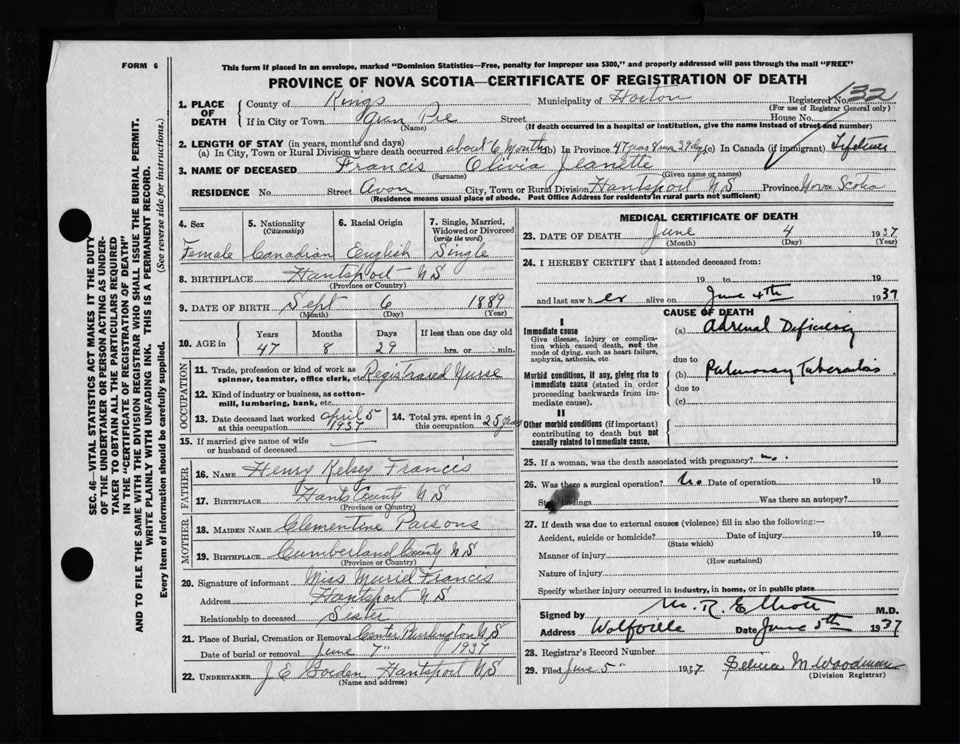 FORM 6
This form if placed in an envelope, marked "Dominion Statistics—Free, penalty for improper use $300," and properly addressed will pass through the mail "FREE"
PROVINCE OF NOVA SCOTIA—CERTIFICATE OF REGISTRATION OF DEATH
1. PLACE OF DEATH County of Kings Municipality of Horton Registered No. 32
(For use of Registrar General only)
If in City or Town Gran Pre Street House No.
(Name) (If death occurred in a hospital or institution, give the name instead of street and number)
2. LENGTH OF STAY (in years, months and days)
(a) In City, Town or Rural Division where death occurred about 6 Months (b) In Province 47 yrs 8 mos 29 dys (c) In Canada (if immigrant) Lifetime
3. NAME OF DECEASED Francis Olivia Jeanette
(Surname) (Given name or names)
RESIDENCE No. Street Avon City, Town or Rural Division Hantsport NS Province Nova Scotia
(Residence means usual place of abode. Post Office Address for residents in rural parts not sufficient)
4. Sex 5. Nationality (Citizenship) 6. Racial Origin 7. Single, Married, Widowed or Divorced (write the word)
Female Canadian English Single
8. BIRTHPLACE Hantsport NS
(Province or Country)
9. DATE OF BIRTH Sept 6 1889
(Month) (Day) (Year)
10. AGE in Years Months Days If less than one day old
47 8 29 hrs. or min.
OCCUPATION
11. Trade, profession or kind of work as spinner, teamster, office clerk, etc. Registrared Nurse
12. Kind of industry or business, as cotton-mill, lumbering, bank, etc.
13. Date deceased last worked at this occupation April 5 1937
14. Total yrs. spent in this occupation 25 years
15. If married give name of wife or husband of deceased
FATHER
16. NAME Henry Kelsey Francis
17. BIRTHPLACE Hants County NS
(Province or Country)
MOTHER
18. MAIDEN NAME Clementine Parsons
19. BIRTHPLACE Cumberland County NS
(Province or Country)
20. Signature of informant Miss Muriel Francis
Address Hantsport NS
Relationship to deceased Sister
21. Place of Burial, Cremation or Removal Center Burlington NS
Date of burial or removal June 7" 1937
22. UNDERTAKER J E Borden Hantsport NS
(Name and address)
MEDICAL CERTIFICATE OF DEATH
23. DATE OF DEATH June 4 1937
(Month) (Day) (Year)
24. I HEREBY CERTIFY that I attended deceased from:
19 to 19
and last saw her alive on June 4th 1937
CAUSE OF DEATH
I
Immediate cause (a) Adrenal Deficiency
Give disease, injury or complication which caused death, not the mode of dying, such as heart failure, asphyxia, asthenia, etc.
due to
Morbid conditions, if any, giving rise to immediate cause (stated in order proceeding backwards from immediate cause). (b) Pulmonary Tuberculosis
due to
(c)
II
Other morbid conditions (if important) contributing to death but not causally related to immediate cause.
25. If a woman, was the death associated with pregnancy? no.
26. Was there a surgical operation? No Date of operation 19
State findings Was there an autopsy?
27. If death was due to external causes (violence) fill in also the following:—
Accident, suicide or homicide? Date of injury 19
(State which)
Manner of injury
(How sustained)
Nature of injury
Specify whether injury occurred in industry, in home, or in public place
Signed by M. R. Elliott M.D.
Address Wolfville Date June 5th 1937
28. Registrar's Record Number
29. Filed June 5" 1937 M Woodman
(Division Registrar)
SEC. 46—VITAL STATISTICS ACT MAKES IT THE DUTY
OF THE UNDERTAKER OR PERSON ACTING AS UNDER-
TAKER TO OBTAIN ALL THE PARTICULARS REQUIRED
IN THE "CERTIFICATE OF REGISTRATION OF DEATH"
AND TO FILE THE SAME WITH THE DIVISION REGISTRAR WHO SHALL ISSUE THE BURIAL PERMIT.
WRITE PLAINLY WITH UNFADING INK. THIS IS A PERMANENT RECORD.
Every item of information should be carefully supplied. (See reverse side for instructions.)